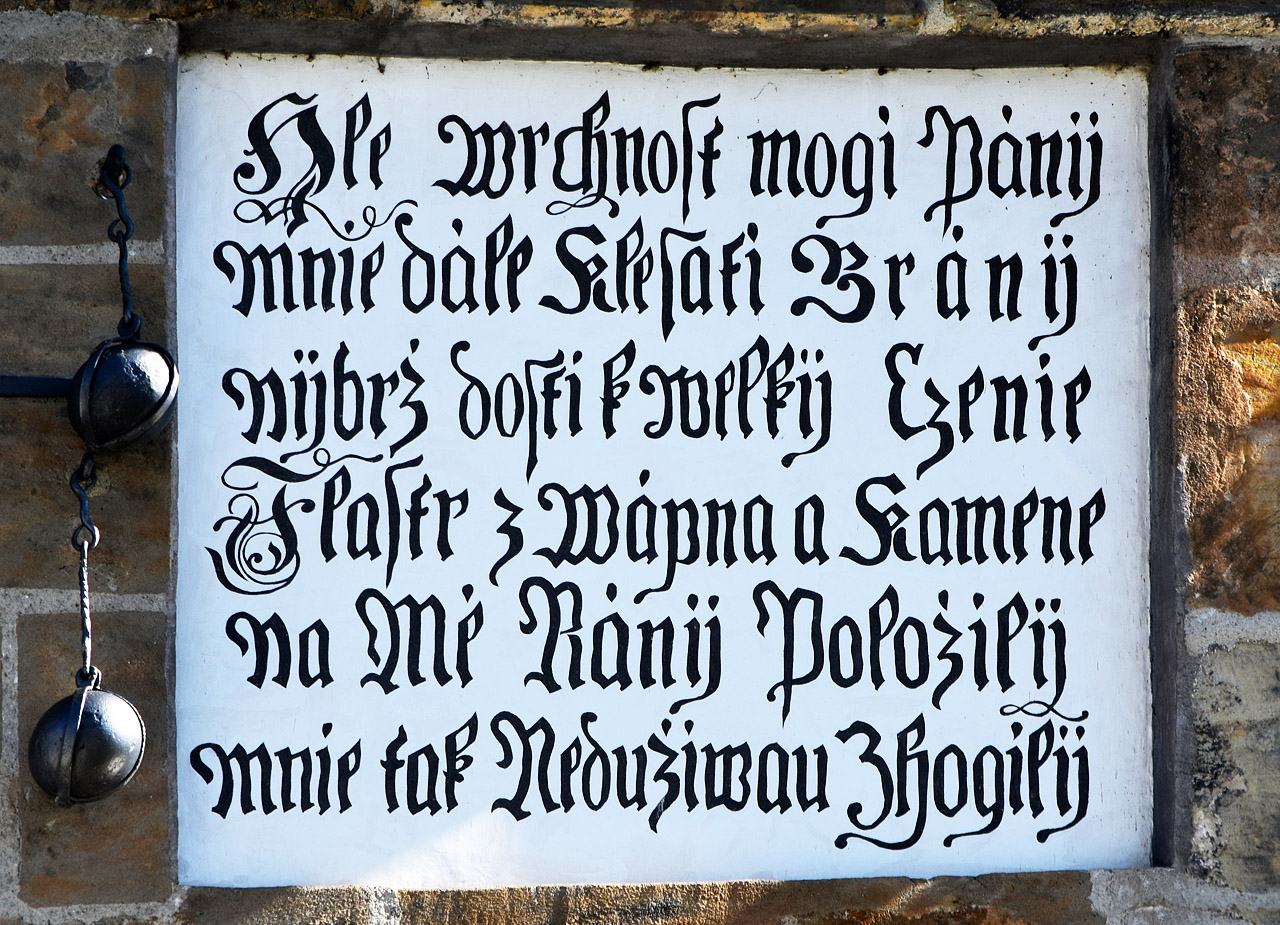 Hle wrchnost mogi Pánij
mnie dále Klesati Bránij
nijbrż dosti k welkij Czenie
Flastr z Wápna a Kamene
na Mé Ránij Położilij
mnie tak Nedużiwau Zhogilij